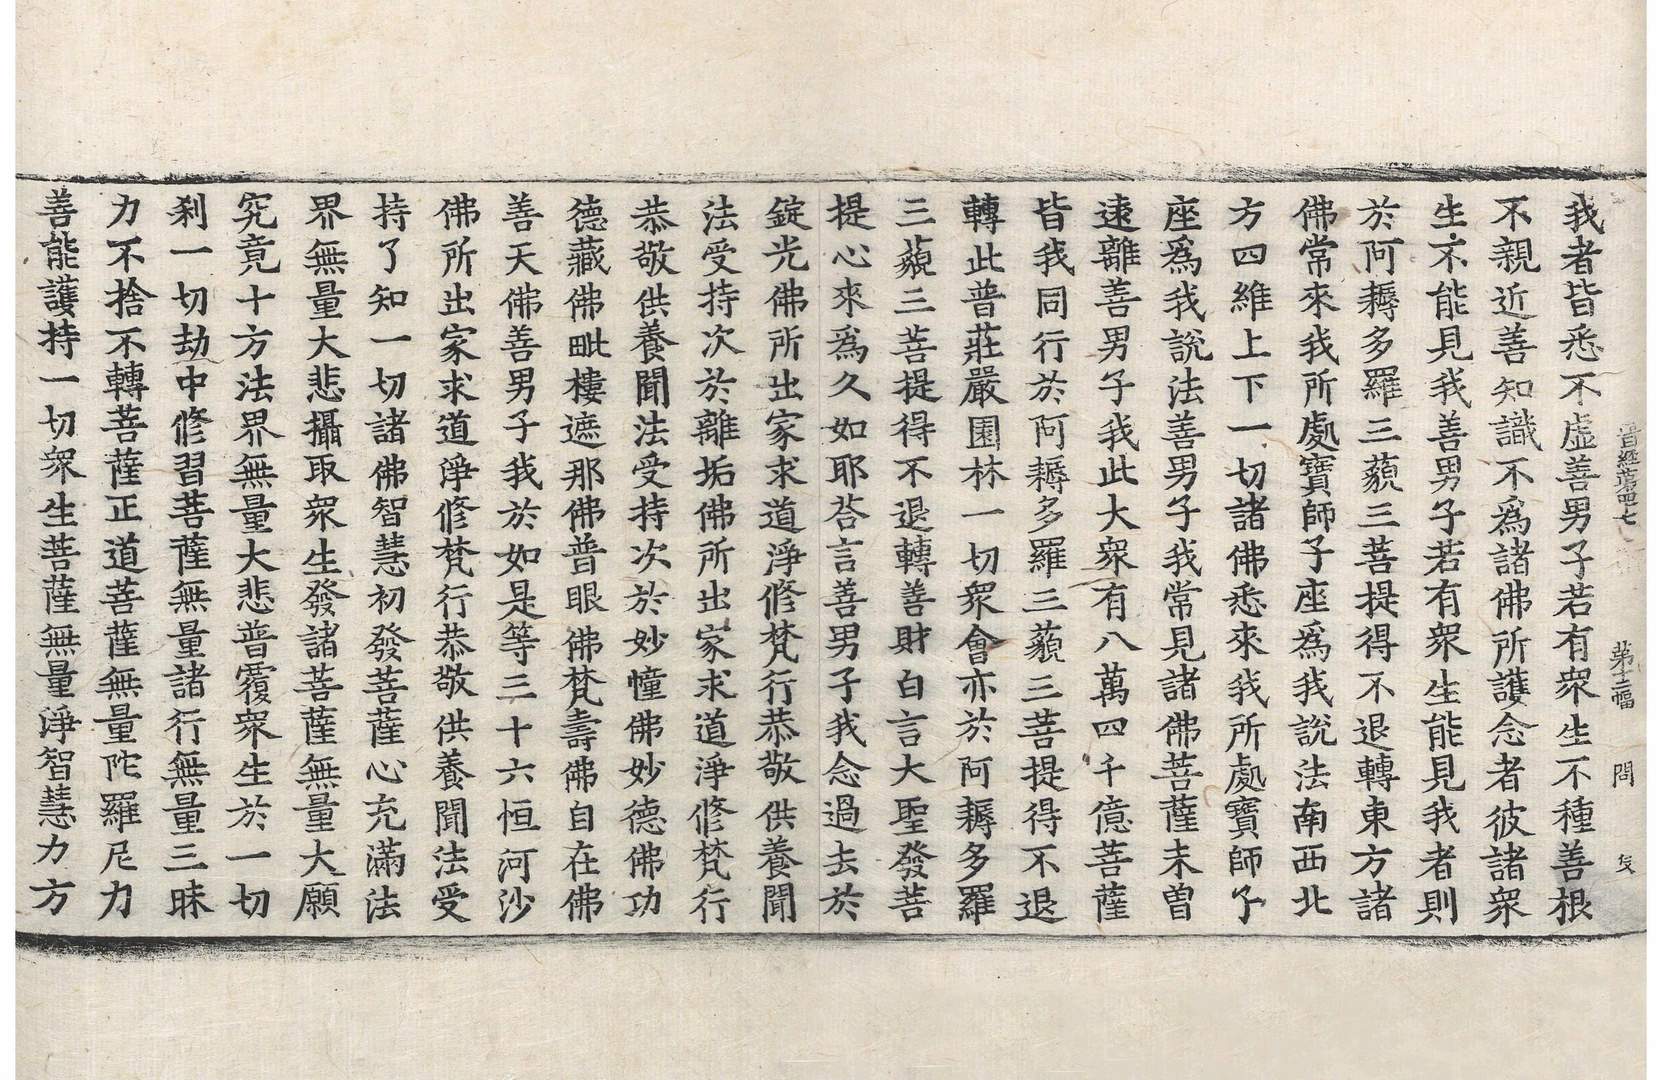 晋經第四十七 第十二幅 問 
我者皆悉不虛善男子若有衆生不種善根
不親近善知識不爲諸佛所護念者彼諸衆
生不能見我善男子若有衆生能見我者則
於阿耨多羅三藐三菩提得不退轉東方諸
佛常來我所處寶師子座爲我說法南西北
方四維上下一切諸佛悉來我所處寶師子
座爲我說法善男子我常見諸佛菩薩未曽
遠離善男子我此大衆有八萬四千億菩薩
皆我同行於阿耨多羅三藐三菩提得不退
轉此普莊嚴園林一切衆會亦於阿耨多羅
三藐三菩提得不退轉善財白言大聖發菩
提心來爲久如耶荅言善男子我念過去於
錠光佛所出家求道淨修梵行恭敬供養聞
法受持次於離垢佛所出家求道淨修梵行
恭敬供養聞法受持次於妙幢佛妙德佛功
德藏佛毗樓遮那佛普眼佛梵壽佛自在佛
善天佛善男子我於如是等三十六恒河沙
佛所出家求道淨修梵行恭敬供養聞法受
持了知一切諸佛智慧初發菩薩心充滿法
界無量大悲攝取衆生發諸菩薩無量大願
究竟十方法界無量大悲普覆衆生於一切
刹一切劫中修習菩薩無量諸行無量三昧
力不捨不轉菩薩正道菩薩無量陀羅尼力
善能護持一切衆生菩薩無量淨智慧力方